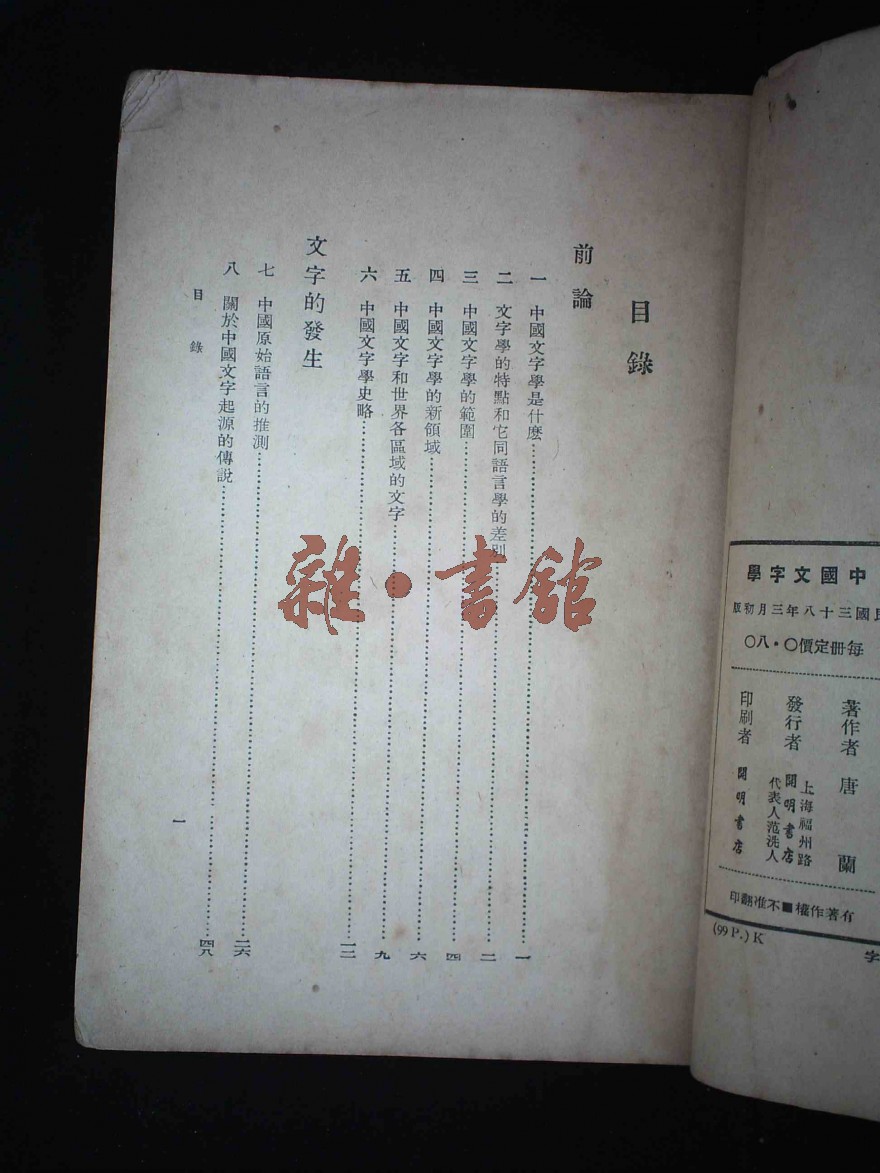 中國文字學
民國三十八年三月初版
每冊定價〇・八〇
著作者 唐蘭
發行者 開明書店
上海福州路
代表人范洗人
印刷者 開明書店
有著作權■不准翻印
(99 P.) K
字
目錄
前論
一 中國文字學是什麽……一
二 文字學的特點和它同語言學的差別……二
三 中國文字學的範圍……四
四 中國文字學的新領域……六
五 中國文字和世界各區域的文字……九
六 中國文字學史略……一二
文字的發生
七 中國原始語言的推測……二六
八 關於中國文字起源的傳說……四八
目錄
一
雜・書館